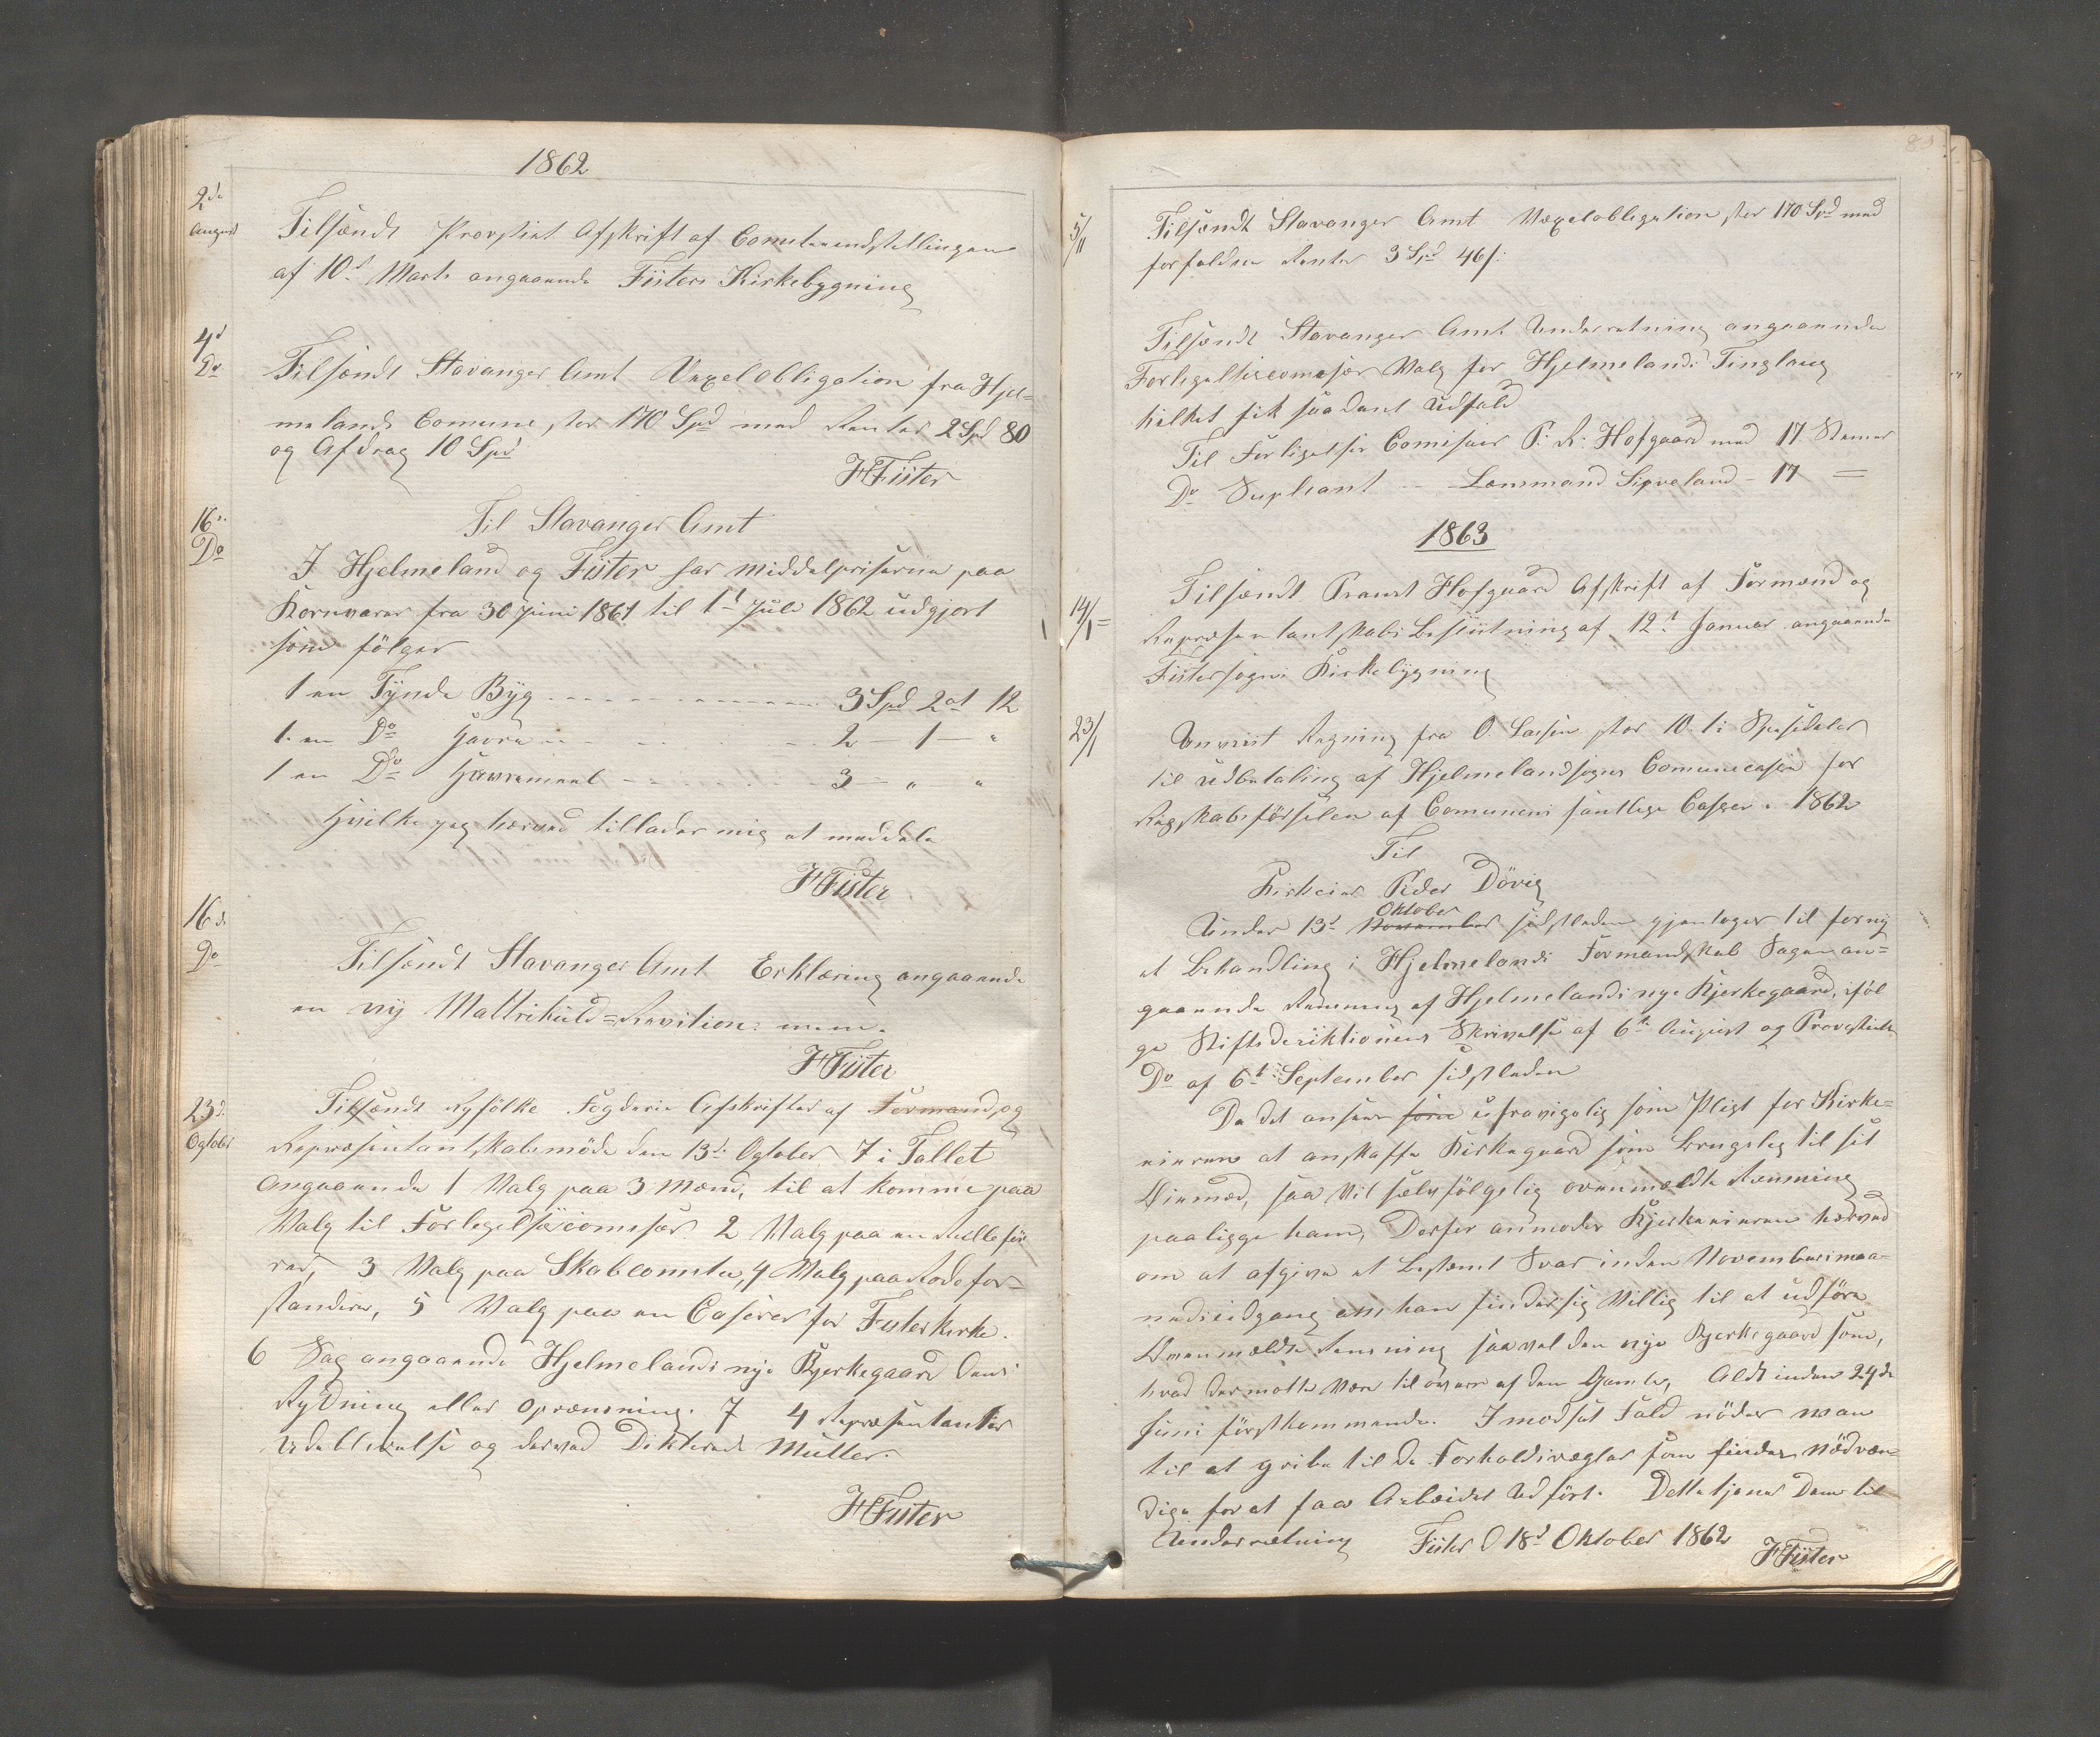 1862
2de
August
Tilsendt Provstiet Afskrift af Comiteeindstillingen
af 10d Marts angaaende Fisters Kirkebygning
4d
Do
Tilsendt Stavanger Amt Vexelobligation fra Hjel=
melands Comune, stor 170 Spd med Renter 2 Spd 80
og Afdrag 10 Spd
HFister
16d
Do
Til Stavanger Amt
I Hjelmeland og Fister har Middelpriserne paa
Kornvarer fra 30 Juni 1861 til 1t Juli 1862 udgjort
som følger
1 en Tynde Byg 3 Spd 2 ot 12
1 en Do Havre 2 — 1 — "
1 en Do Havremeel 3 — " — "
Hvilke jeg herved tillader mig at meddele
HFister
16d
Do
Tilsendt Stavanger Amt Erklæring angaaende
en ny Mattrikuls=Revition: m.m.
HFister
23d
Ogtober
Tilsendt Ryfølke Fogderie Afskrifter af Formand, og
Repræsentantskabsmøde den 13d Ogtober 7 i Tallet
Angaaende 1 Valg paa 3 Mænd, til at komme paa
Valg til Forlegelsescomisær 2 Valg paa en Rullefø
rer, 3 Valg paa Skolecomite, 4 Valg paa Rodefor=
standere, 5 Valg paa en Caserer for Fisterkirke.
6 Sag angaaende Hjelmelands nye Kjerkegaard dens
Rydning eller oprensning. 7 4 Repræsentanter
Udeblivelse og derved Dikterede Mulkter.
HFister
5/11
Tilsendt Stavanger Amt Vexelobligation stor 170 Spd med
forfaldne Renter 3 Spd 46 s:
Tilsendt Stavanger Amt Underretning angaaende
Forligelsescomesær Valg for Hjelmelands Tinglaug
hilket fik saadant Udfald
Til Forligelses Comisær P: R: Hofgaard med 17 Stemer
Do Supleant — Lensmand Sigveland — 17 =
1863
14/1 =
Tilsendt Præst Hofgaard Afskrift af Formænd og
Repræsentantskabs Beslutning af 12t Januar angaaende
Fistersogns Kirkebygning
23/1
Anvist Regning fra O. Larsen stor 10 ti Spesidaler
til Udbetaling af Hjelmelandsogns Comunecasse for
Regskabsførselen af Comunens samtlige Casser i 1862
Til
Kirkeeier Peder Døvig
Oktober
Under 13d November sidstleden gjentoges til forny
et Behandling i Hjelmelands Formandskab Sagen an=
gaaende Rensning af Hjelmelands nye Kjerkegaard, iføl
ge Stiftsderiktionens Skrivelse af 6te August og Provstiets
Do af 6t September sidstleden
Da det ansees som ufravigelig som Pligt for Kirke=
eieren at anskaffe Kirkegaard som Brugelig til sit
Øiemed, saa vil selvfølgelig ovenmeldte Rensning
paaligge ham, Derfor anmodes Kjerkeeieren herved
om at afgive et Bestemt Svar inden Novembermaa=
nedsudgang om han finder sig Villig til at udføre
Ovenmeldte Rensning saavel den nye Kjerkegaard som,
hvad der motte være tilovers af den Gamle, Aldt inden 24de
Juni førstkommende. I modsat Fald nødes man
til at gribe til de Forholdsregler som findes Nødven=
dige for at faae Arbeidet Udført. Dette tjener Dem til
Underretning Fister D 18d Oktober 1862 HFister